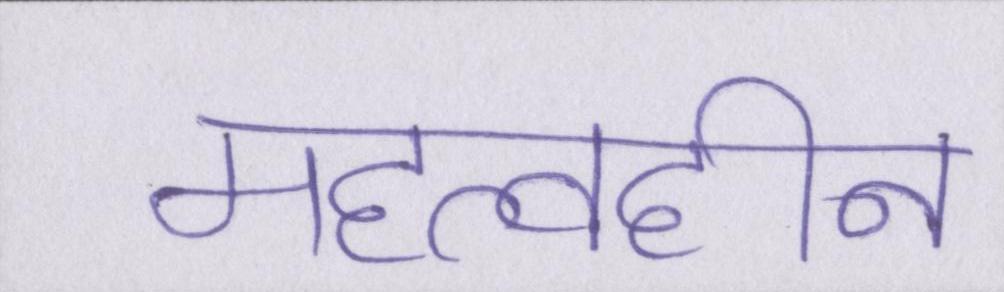 महत्वहीन